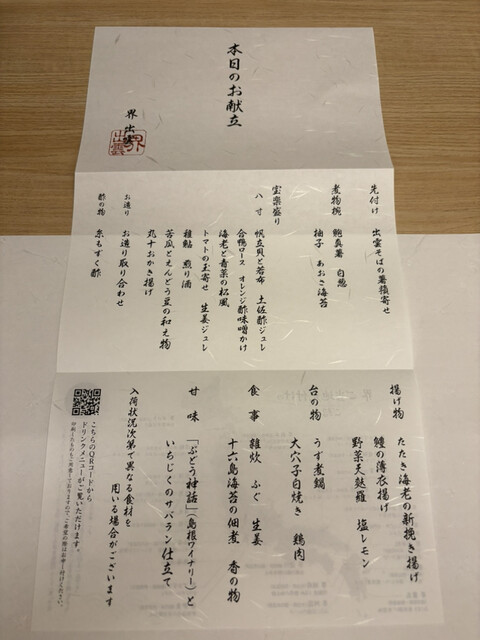 本日のお献立
界 出雲
先付け 出雲そばの箸猪寄せ
煮物椀 鮑真薯 白葱
柚子 あおさ海苔
宝楽盛り
八寸 帆立貝と若布 土佐酢ジュレ
合鴨ロース オレンジ酢味噌かけ
海老と青菜の松風
トマトの玉寄せ 生姜ジュレ
稚鮎 煎り酒
苦瓜とえんどう豆の和え物
丸十おかき揚げ
お造り お造り取り合わせ
酢の物 糸もずく酢
揚げ物 たたき海老の新挽き揚げ
鰻の薄衣揚げ
野菜天麩羅 塩レモン
台の物 うず煮鍋
大穴子白焼き 鶏肉
食事 雑炊 ふぐ 生姜
十六島海苔の佃煮 香の物
甘味 「ぶどう神話」(島根ワイナリー)と
いちじくのサバラン仕立て
入荷状況次第で異なる食材を
用いる場合がございます
こちらのQRコードから
ドリンクメニューがご覧いただけます。